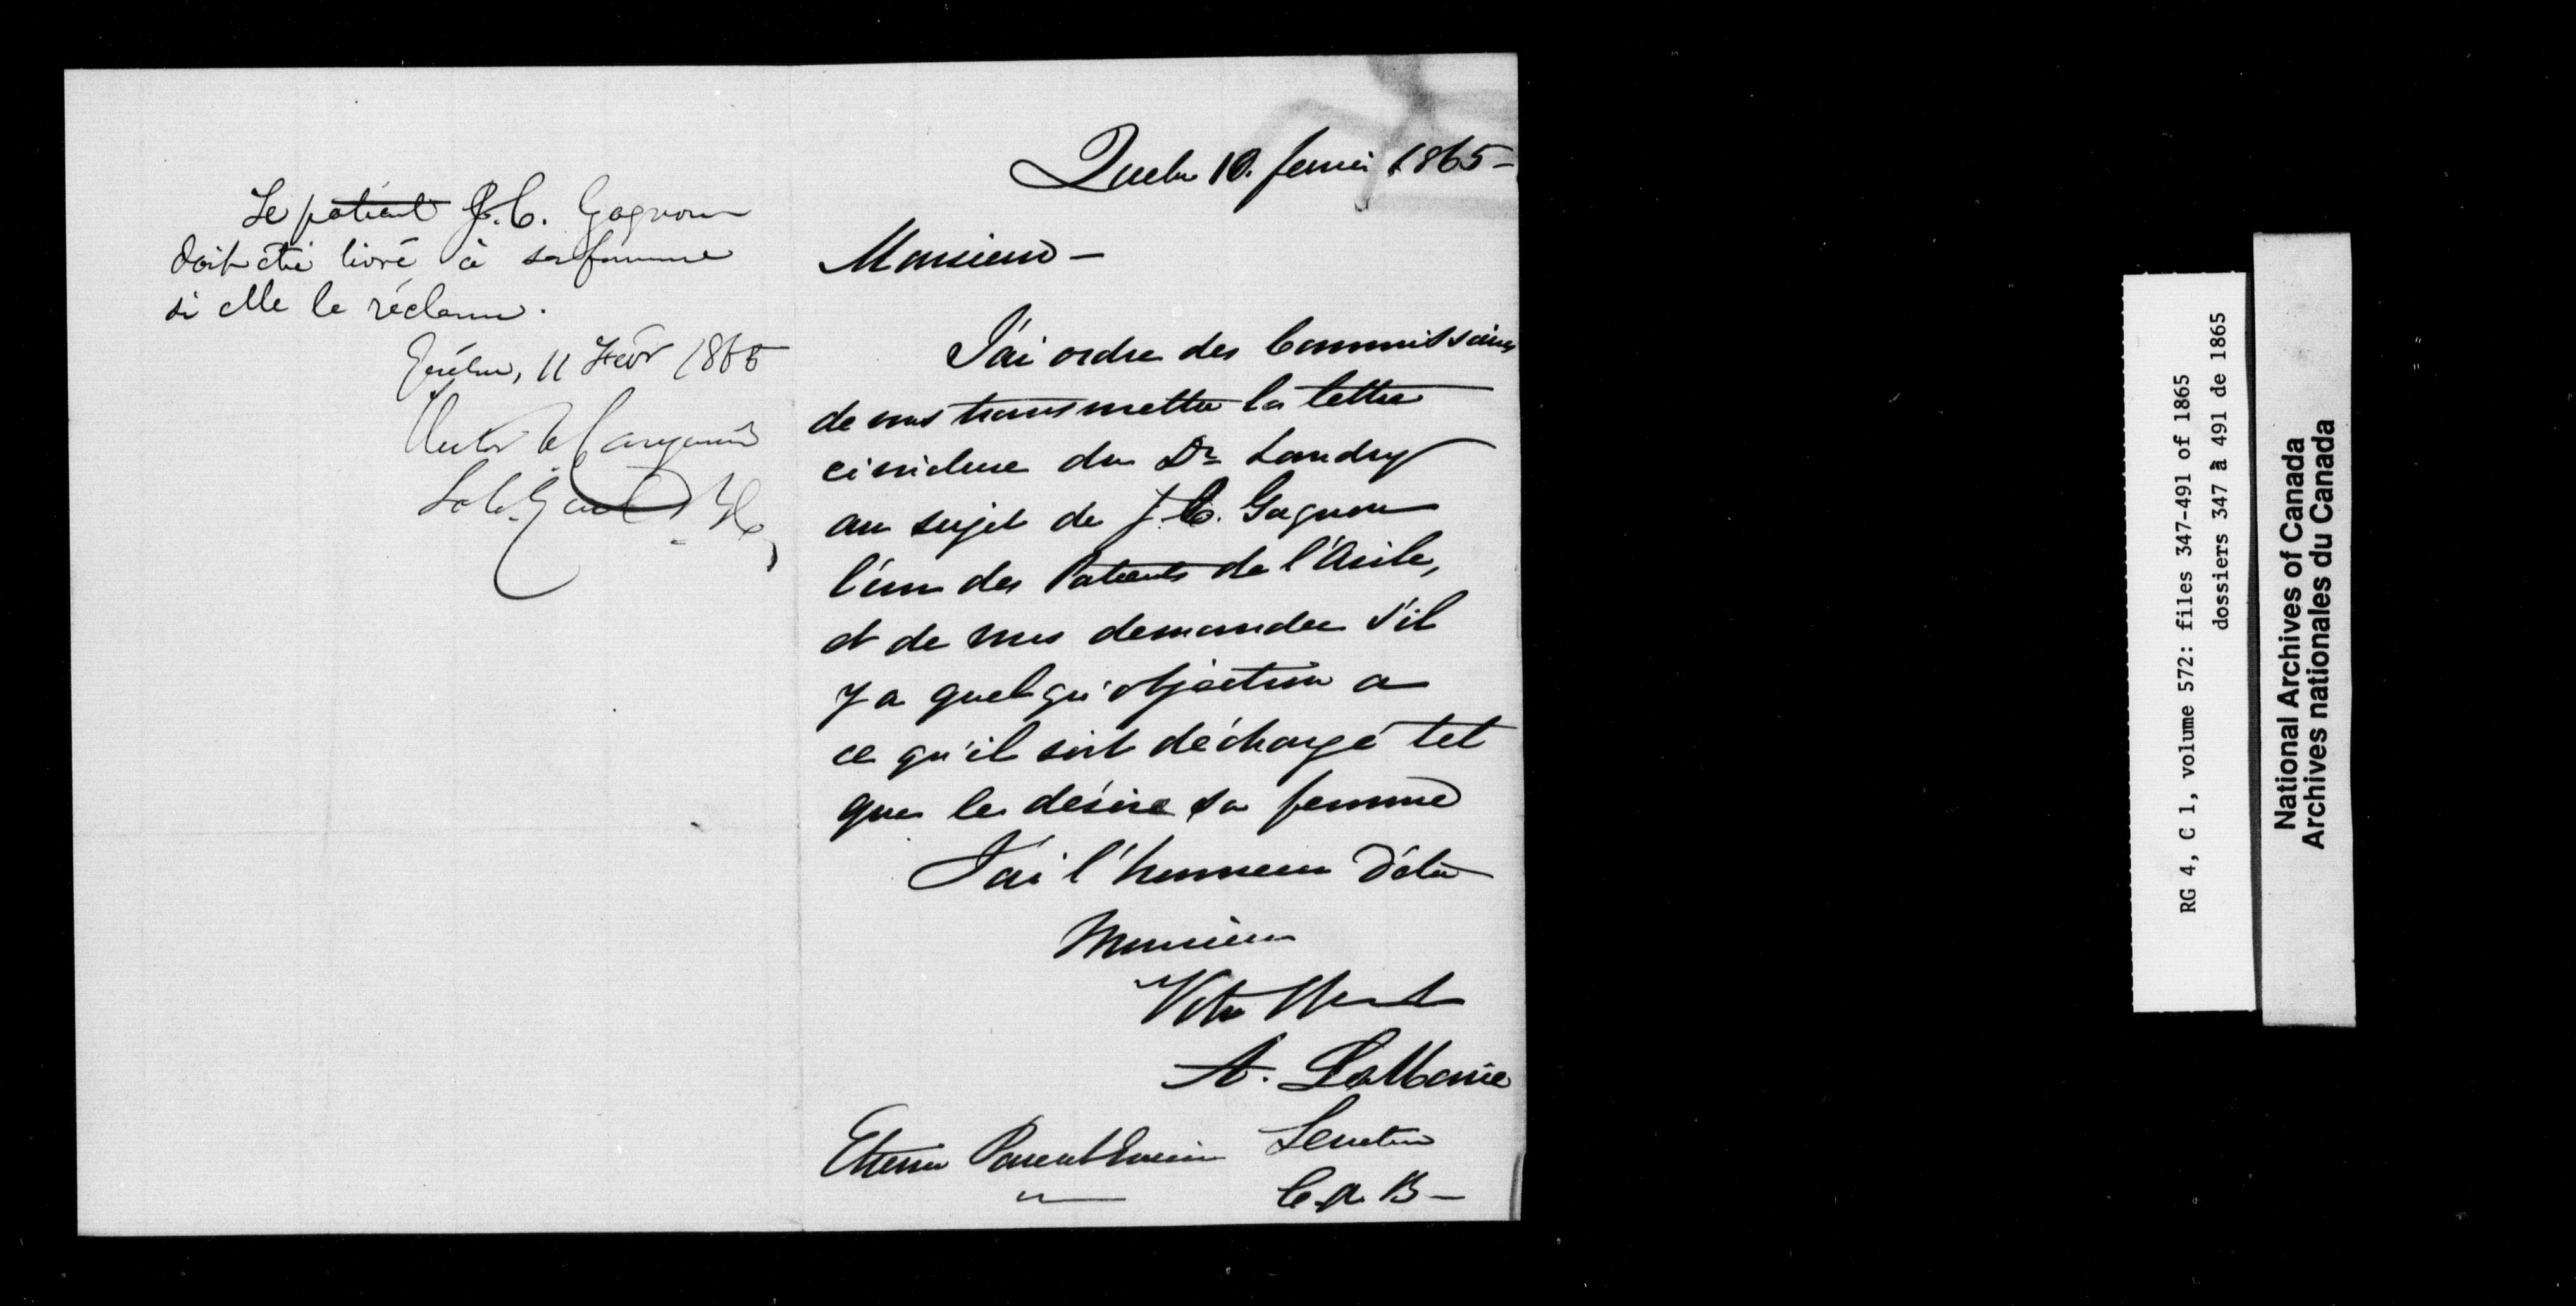 Le patient J. C. Gagnon
doit être livré à sa femme
si elle le réclame.
Québec, 11 Fév 1865
Québec 10. fevrier 1865 -
Monsieur -
J'ai ordre des Commissaires
de vous transmettre la lettre
ci incluse du Dr Landry
au sujet de J. C. Gagnon
l'un des Patients de l'Asile,
et de vous demander s'il
y a quelqu'objection a
ce qu'il soit déchargé tel
que le désire sa femme
J'ai l'honneur d'être
Monsieur
Votre
A. LaMarie
Etienne Parent Ecuier Secretaire
C. A. B -
RG 4, C 1, volume 572: files 347-491 of 1865
dossiers 347 à 491 de 1865
National Archives of Canada
Archives nationales du Canada